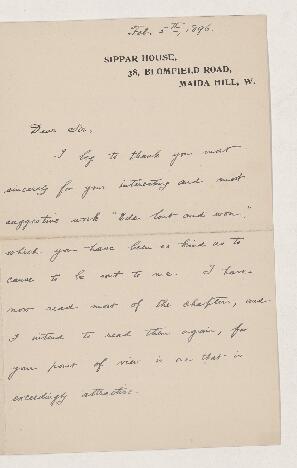 Feb. 5TH, 1896.
SIPPAR HOUSE,
38, BLOMFIELD ROAD,
MAIDA HILL, W.
Dear Sir,
I beg to thank you most
sincerely for your interesting and most
suggestive work "Eden lost and won,"
which you have been so kind as to
cause to be sent to me. I have
now read most of the chapters, and
I intend to read them again, for
your point of view is one that is
exceedingly attractive.